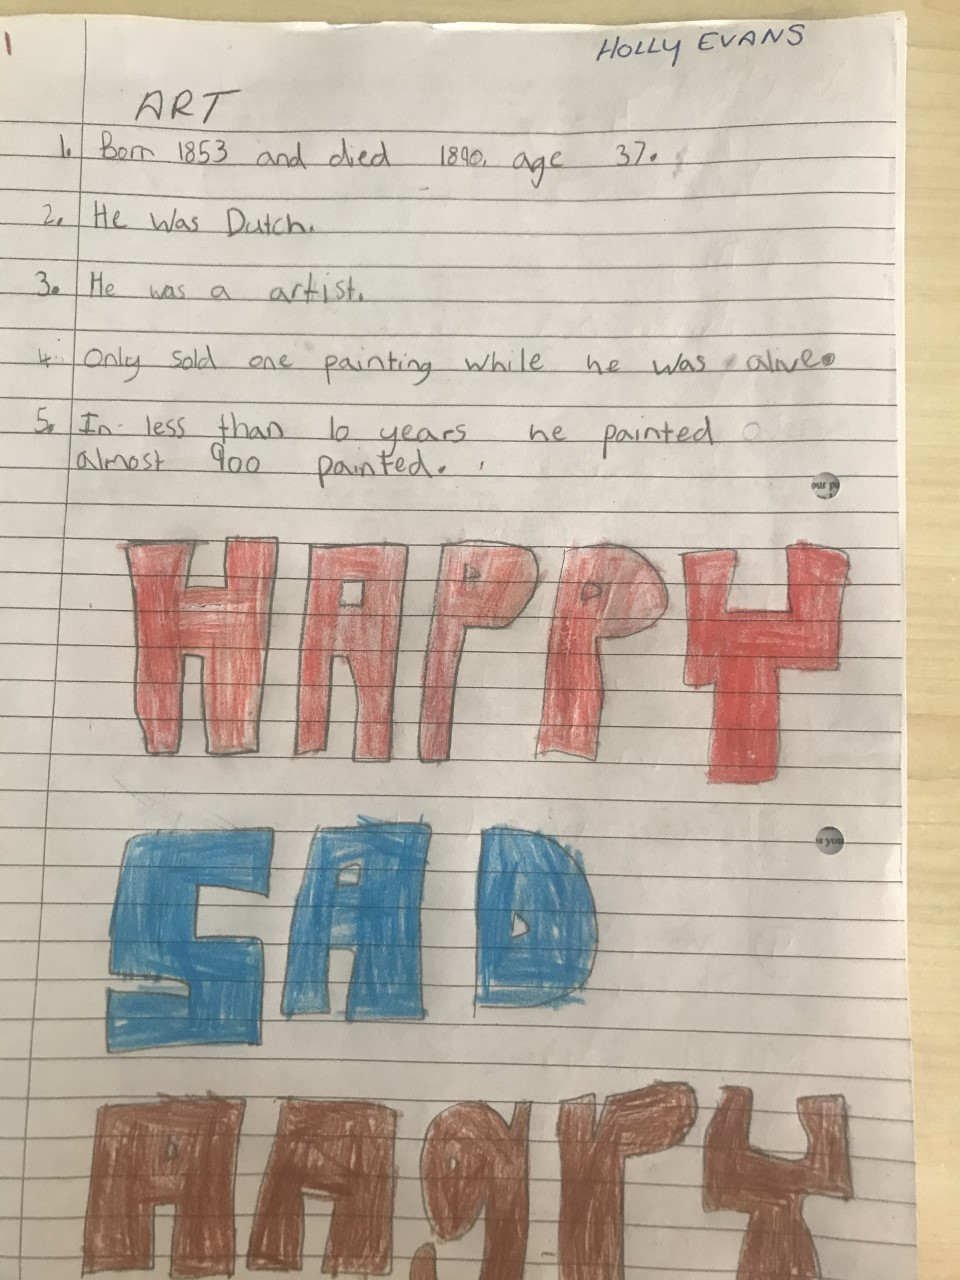 1
HOLLY EVANS
ART
1. Born 1853 and died 1890, age 37.
2. He Was Dutch.
3. He was a artist.
4. Only sold one painting while he was alive.
5. In less than 10 years he painted
almost 900 painted.
our
HAPPY
is you
SAD
AAgrY